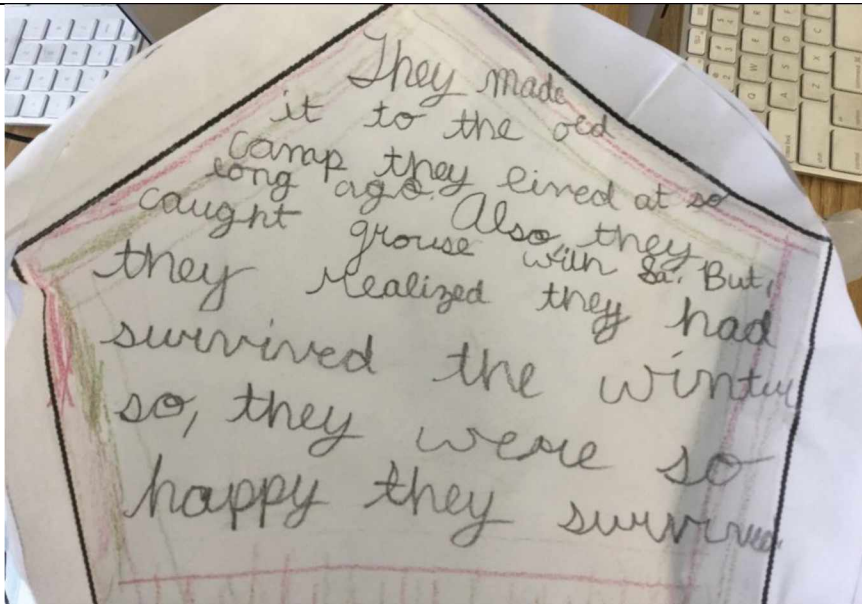 They made
it to the old
camp they lived at so
long ago. Also, they
caught grouse with Sa. But,
they realized they had
survived the winter
so, they were so
happy they survived